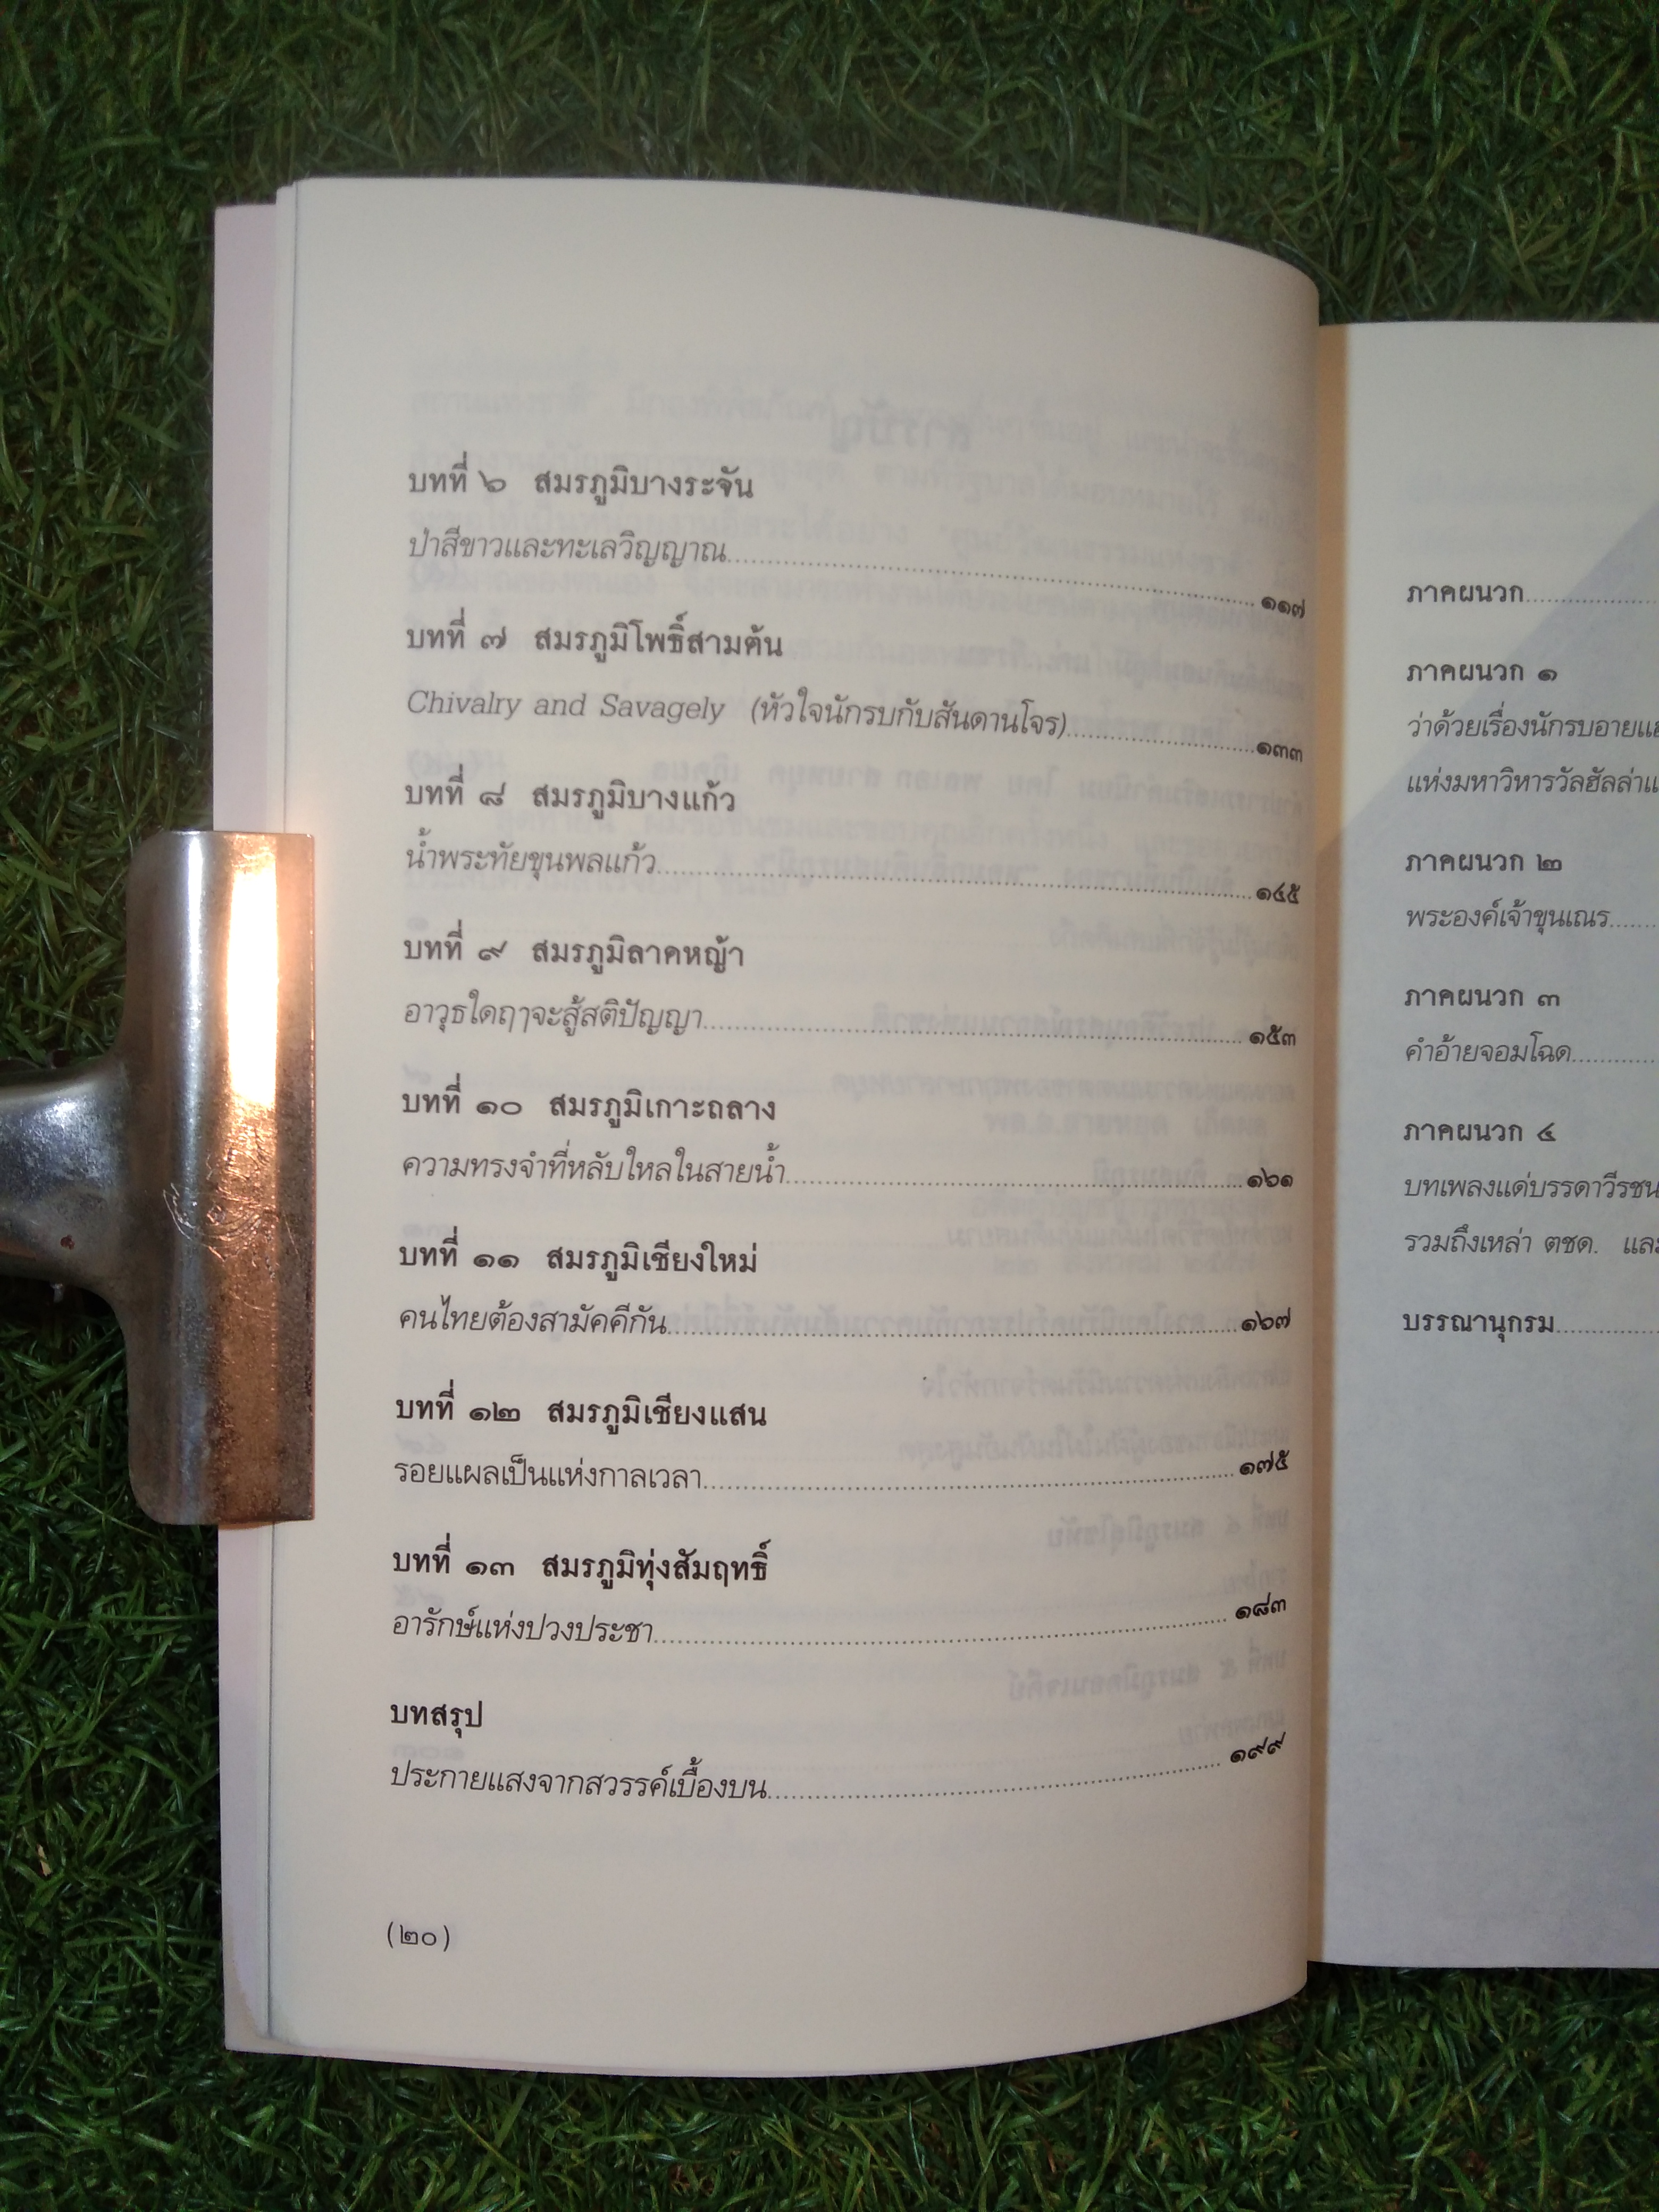 บทที่ ๖ สมรภูมิบางระจัน
ป่าสีขาวและทะเลวิญญาณ........................................๑๑๗
บทที่ ๗ สมรภูมิโพธิ์สามต้น
Chivalry and Savagely (หัวใจนักรบกับสันดานโจร)....................๑๓๓
บทที่ ๘ สมรภูมิบางแก้ว
น้ำพระทัยขุนพลแก้ว........................................๑๔๕
บทที่ ๙ สมรภูมิลาดหญ้า
อาวุธใดฤๅจะสู้สติปัญญา........................................๑๕๓
บทที่ ๑๐ สมรภูมิเกาะถลาง
ความทรงจำที่หลับใหลในสายน้ำ........................................๑๖๑
บทที่ ๑๑ สมรภูมิเชียงใหม่
คนไทยต้องสามัคคีกัน........................................๑๖๗
บทที่ ๑๒ สมรภูมิเชียงแสน
รอยแผลเป็นแห่งกาลเวลา........................................๑๗๕
บทที่ ๑๓ สมรภูมิทุ่งสัมฤทธิ์
อารักษ์แห่งปวงประชา........................................๑๘๓
บทสรุป
ประกายแสงจากสวรรค์เบื้องบน........................................๑๙๙
(๒๐)
ภาคผนวก....................
ภาคผนวก ๑
ว่าด้วยเรื่องนักรบ
แห่งมหาวิหารวัลฮัลล่า
ภาคผนวก ๒
พระองค์เจ้าขุนเณร........
ภาคผนวก ๓
คำอ้ายจอมโฉด............
ภาคผนวก ๔
บทเพลงแด่บรรดาวีรชน
รวมถึงเหล่า ตชด. และ
บรรณานุกรม..............